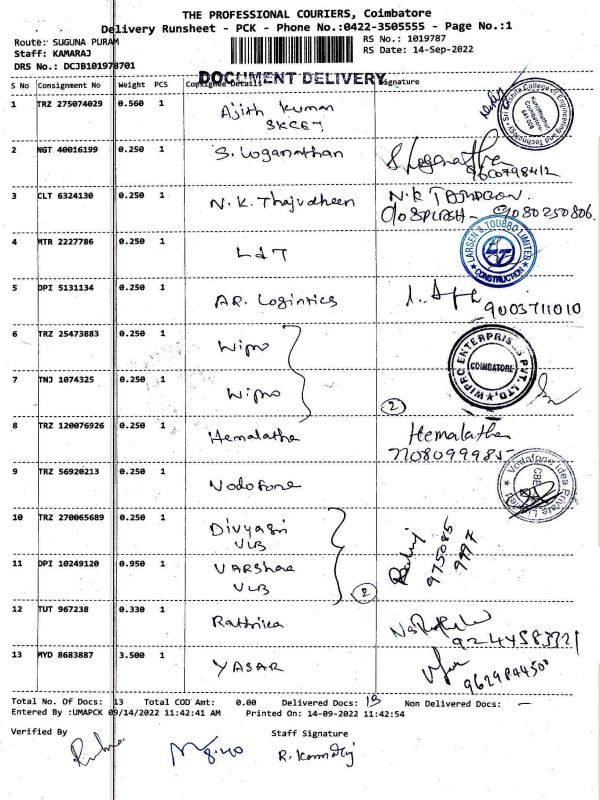 THE PROFESSIONAL COURIERS, Coimbatore
Delivery Runsheet - PCK - Phone No.:0422-3505555 - Page No.:1
Route: SUGUNA PURAM
RS No.: 1019787
Staff: KAMARAJ
RS Date: 14-Sep-2022
DRS No.: DCJB101978701
DOCUMENT DELIVERY
S No Consignment No Weight PCS Consignee Details Signature
1 TRZ 275074029 0.560 1 Ajith Kumar
SKCET
2 NGT 40016199 0.250 1 S. Loganathan S. Loganathan
9600798412
3 CLT 6324130 0.250 1 N.K. Thajudheen N.K
9080250806
4 MTR 2227786 0.250 1 L&T
LARSEN & TOUBRO LIMITED
CONSTRUCTION
5 DPI 5131134 0.250 1 AR. Logintics
9003711010
6 TRZ 25473883 0.250 1 Wipro
WIPRO ENTERPRISES PVT. LTD.
COIMBATORE
7 TNJ 1074325 0.250 1 Wipro
2
8 TRZ 120076926 0.250 1 Hemalatha Hemalatha
7708099985
9 TRZ 56920213 0.250 1 Vodofone
Vodafone Idea Private Limited
CBE
10 TRZ 270065689 0.250 1 Divyasri
VLB
975085
9997
11 DPI 10249120 0.950 1 Varshaa
VLB
2
12 TUT 967238 0.330 1 Rathika
9244583321
13 MYD 8683887 3.500 1 YASAR
9629844500
Total No. Of Docs: 13 Total COD Amt: 0.00 Delivered Docs: 13 Non Delivered Docs: —
Entered By :UMAPCK 09/14/2022 11:42:41 AM Printed On: 14-09-2022 11:42:54
Verified By Staff Signature